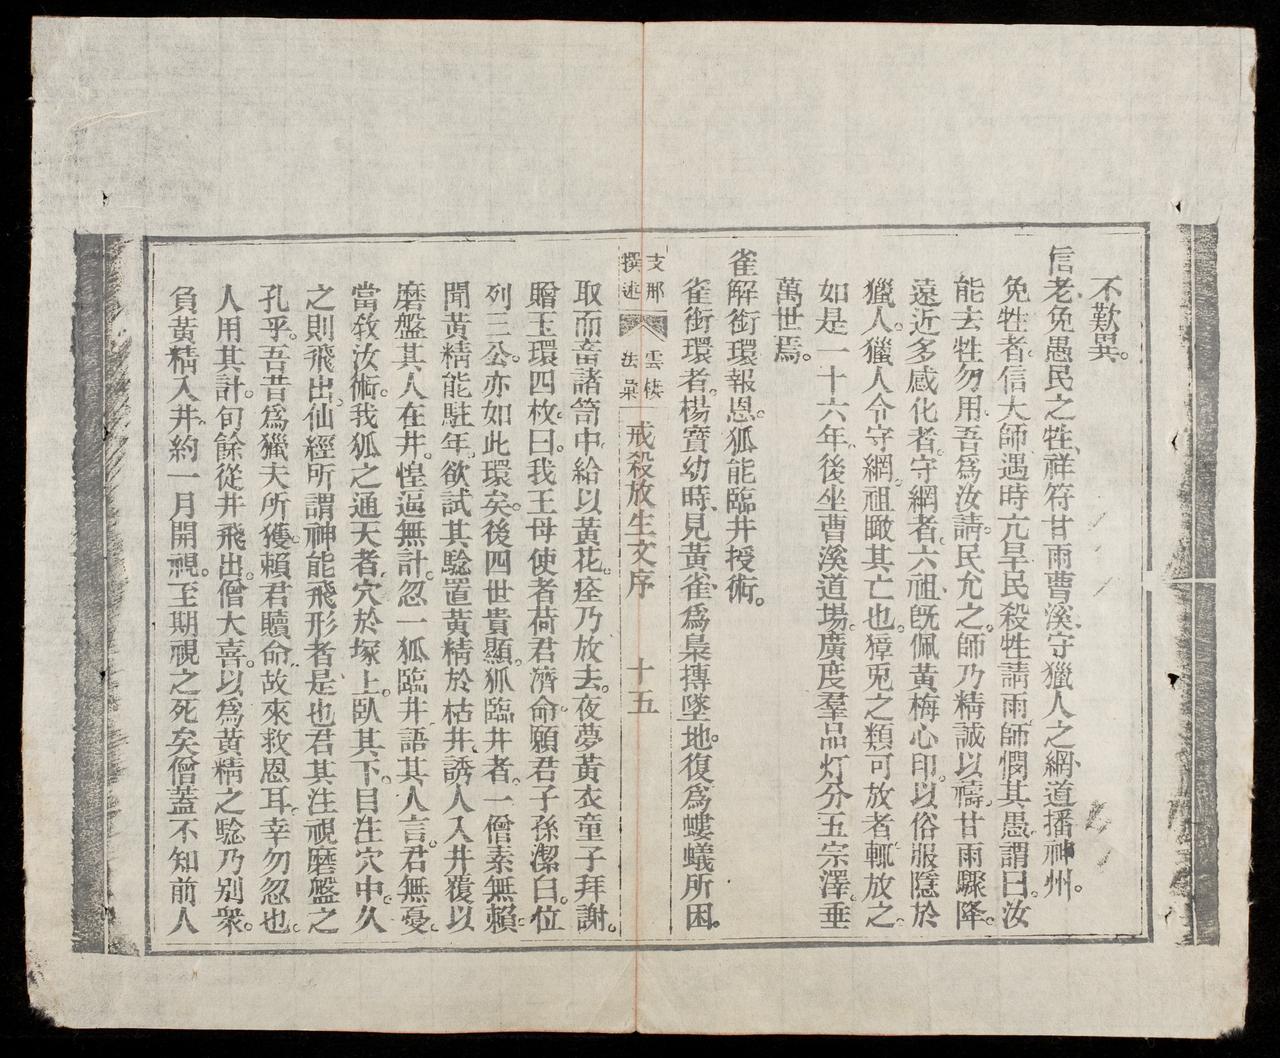 不歎異。
信老免愚民之牲。祥符甘雨。曹溪守獵人之網。道播神州。
免牲者。信大師遇時亢旱。民殺牲請雨。師憫其愚。謂曰。汝
能去牲勿用。吾為汝請。民允之。師乃精誠以禱。甘雨驟降。
遠近多感化者。守網者。六祖既佩黃梅心印。以俗服隱於
獵人。獵人令守網。祖瞰其亡也。獐兎之類可放者輒放之。
如是一十六年。後坐曹溪道場。廣度羣品。灯分五宗。澤垂
萬世焉。
雀解銜環報恩。狐能臨井授術。
雀銜環者。楊寶幼時。見黃雀為梟摶墜地。復為螻蟻所困。
支那撰述
雲棲法彙
戒殺放生文序 十五
取而畜諸笥中。給以黃花。痊乃放去。夜夢黃衣童子拜謝。
贈玉環四枚。曰。我王母使者。荷君濟命。願君子孫潔白。位
列三公。亦如此環矣。後四世貴顯。狐臨井者。一僧素無賴。
聞黃精能駐年。欲試其驗。置黃精於枯井。誘人入井。覆以
磨盤。其人在井。惶逼無計。忽一狐臨井。語其人言。君無憂。
當敎汝術。我狐之通天者。穴於塚上。臥其下。目注穴中。久
之則飛出。仙經所謂神能飛形者是也。君其注視磨盤之
孔乎。吾昔為獵夫所獲。賴君贖命。故來救恩耳。幸勿忽也。
人用其計。旬餘從井飛出。僧大喜。以為黃精之驗。乃別衆。
負黃精入井。約一月開視。至期視之死矣。僧蓋不知前人